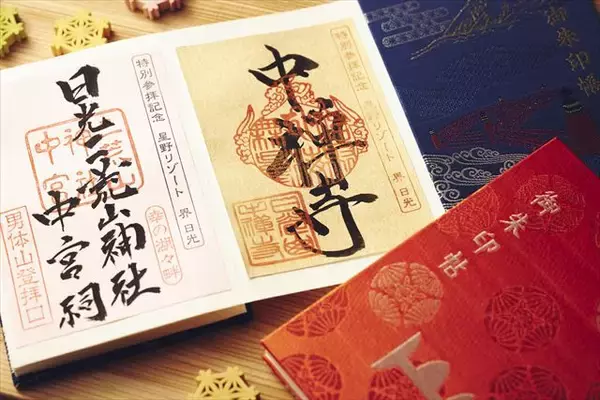 特別参拝記念 星野リゾート 界 日光
日光二荒山神社
中宮祠
幸の湖々畔
男体山登拝口
中宮
特別参拝記念 星野リゾート 界 日光
中禅寺
御朱印帳
御朱印帖